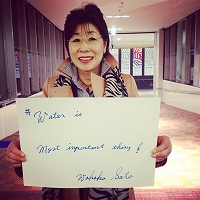 # Water is
Most important thing !
Wakako Sato